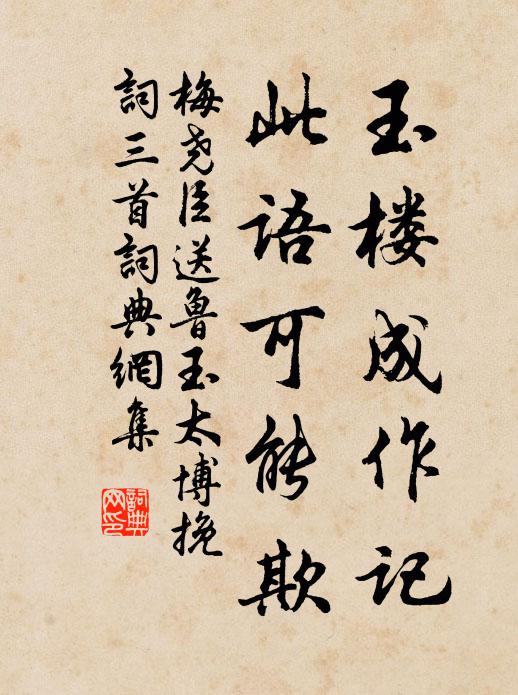 玉楼成作记
此语可能欺
梅尧臣送鲁玉太博挽
詞三首詞典網集
詞典網印